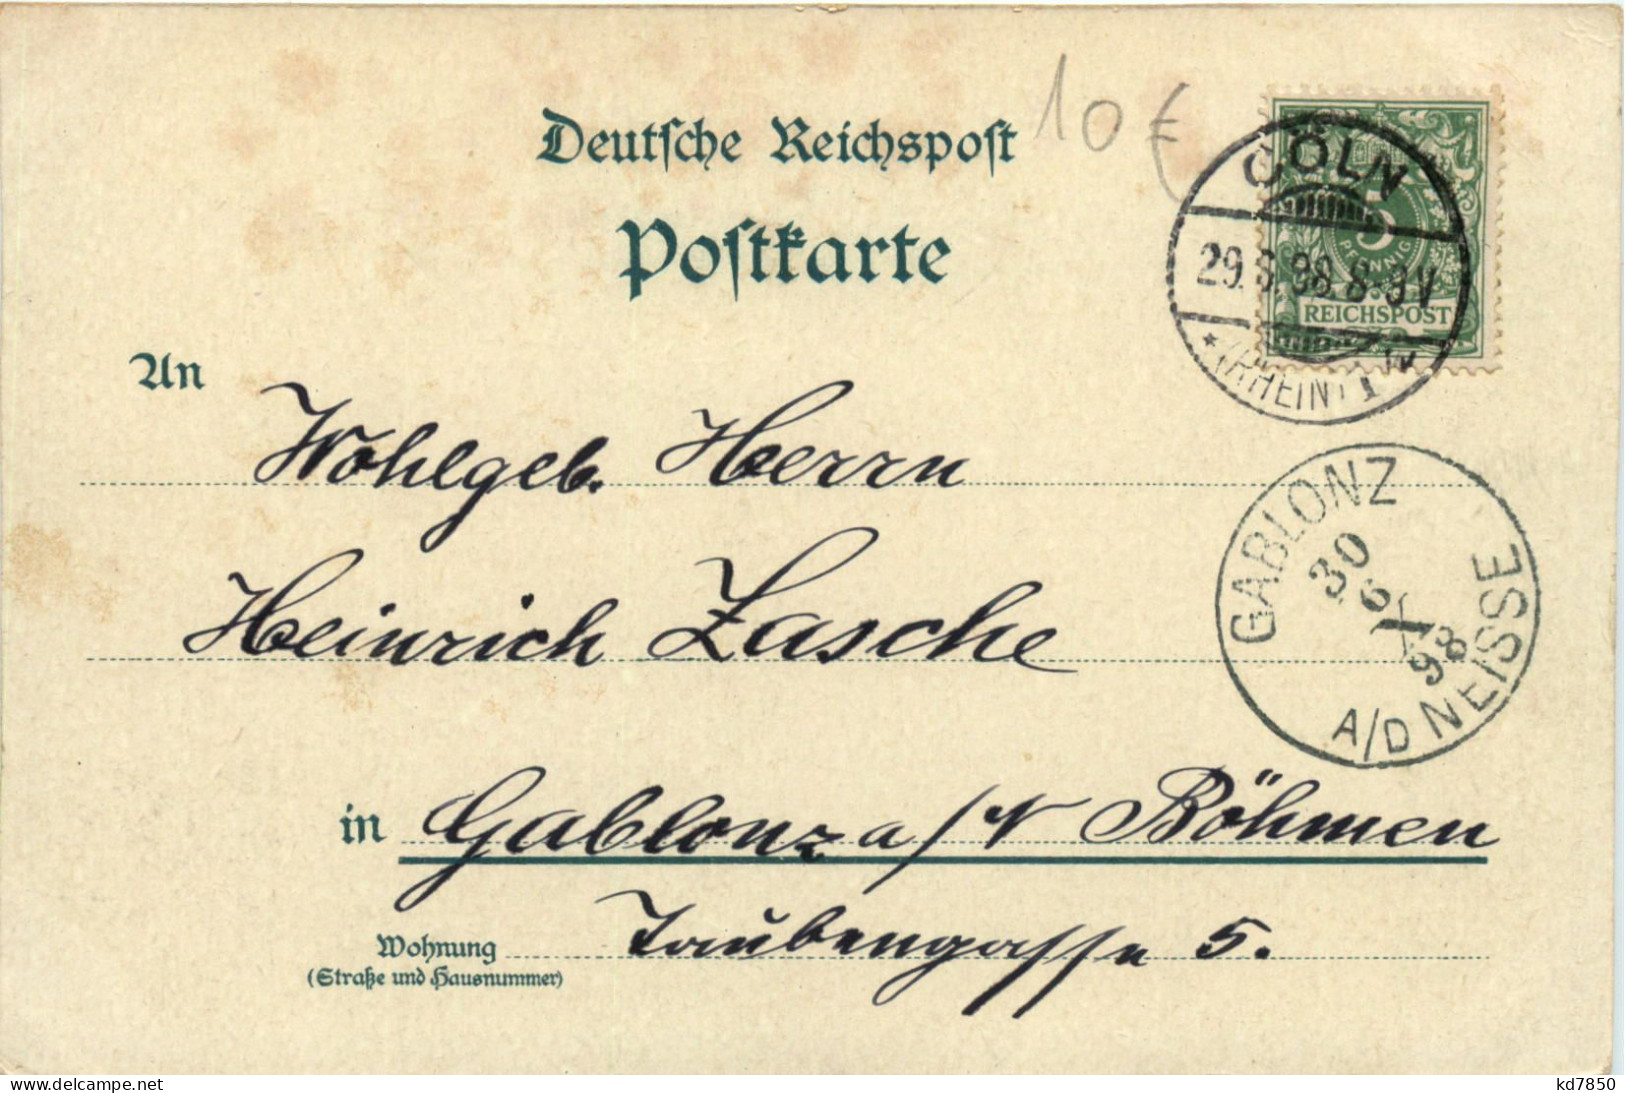 Deutsche Reichspost
10 €
Postkarte
CÖLN
29.6.98.8-9V
*(RHEIN) 1 W
5
PFENNIG
REICHSPOST
An
Wohlgeb. Herrn
Heinrich Zasche
GABLONZ
30
6
98
A/D NEISSE
in Gablonz a/N Böhmen
Wohnung Taubengasse 5.
(Straße und Hausnummer)
www.delcampe.net
kd7850